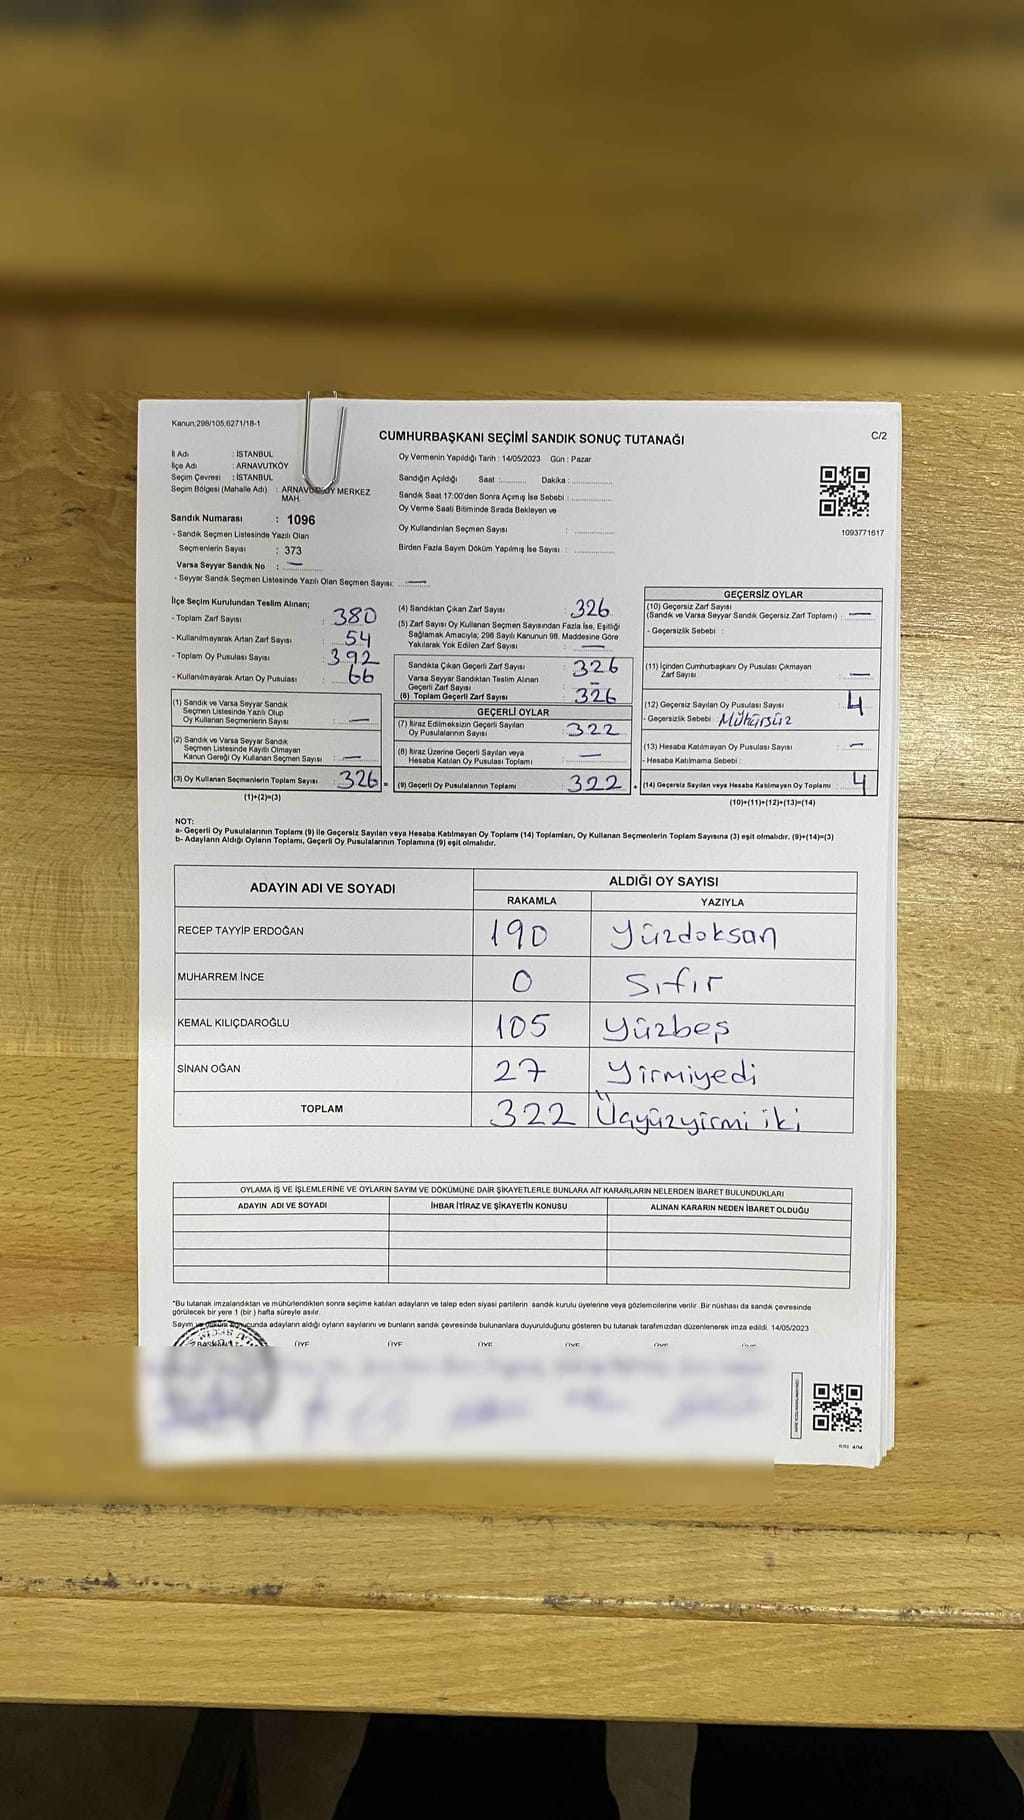 Kanun,298/105,6271/18-1
C/2
CUMHURBAŞKANI SEÇİMİ SANDIK SONUÇ TUTANAĞI
İl Adı : İSTANBUL
İlçe Adı : ARNAVUTKÖY
Seçim Çevresi : İSTANBUL
Seçim Bölgesi (Mahalle Adı) : ARNAVUTKÖY MERKEZ
MAH.
Sandık Numarası : 1096
- Sandık Seçmen Listesinde Yazılı Olan
Seçmenlerin Sayısı : 373
Varsa Seyyar Sandık No : —
- Seyyar Sandık Seçmen Listesinde Yazılı Olan Seçmen Sayısı: —
Oy Vermenin Yapıldığı Tarih : 14/05/2023 Gün : Pazar
Sandığın Açıldığı Saat :.............. Dakika :..............
Sandık Saat 17:00'den Sonra Açımış İse Sebebi :..............
Oy Verme Saati Bitiminde Sırada Bekleyen ve
Oy Kullandırılan Seçmen Sayısı : ..............
Birden Fazla Sayım Döküm Yapılmış İse Sayısı : ..............
1093771617
İlçe Seçim Kurulundan Teslim Alınan;
- Toplam Zarf Sayısı : 380
- Kullanılmayarak Artan Zarf Sayısı : 54
- Toplam Oy Pusulası Sayısı : 392
- Kullanılmayarak Artan Oy Pusulası : 66
(1) Sandık ve Varsa Seyyar Sandık
Seçmen Listesinde Yazılı Olup
Oy Kullanan Seçmenlerin Sayısı : —
(2) Sandık ve Varsa Seyyar Sandık
Seçmen Listesinde Kayıtlı Olmayan
Kanun Gereği Oy Kullanan Seçmen Sayısı : —
(3) Oy Kullanan Seçmenlerin Toplam Sayısı : 326 =
(1)+(2)=(3)
(4) Sandıktan Çıkan Zarf Sayısı : 326
(5) Zarf Sayısı Oy Kullanan Seçmen Sayısından Fazla İse, Eşitliği
Sağlamak Amacıyla; 298 Sayılı Kanunun 98. Maddesine Göre
Yakılarak Yok Edilen Zarf Sayısı : —
Sandıkta Çıkan Geçerli Zarf Sayısı : 326
Varsa Seyyar Sandıktan Teslim Alınan
Geçerli Zarf Sayısı : —
(6) Toplam Geçerli Zarf Sayısı : 326
GEÇERLİ OYLAR
(7) İtiraz Edilmeksizin Geçerli Sayılan
Oy Pusulalarının Sayısı : 322
(8) İtiraz Üzerine Geçerli Sayılan veya
Hesaba Katılan Oy Pusulası Toplamı : —
(9) Geçerli Oy Pusulalarının Toplamı : 322 +
GEÇERSİZ OYLAR
(10) Geçersiz Zarf Sayısı
(Sandık ve Varsa Seyyar Sandık Geçersiz Zarf Toplamı) : —
- Geçersizlik Sebebi :
(11) İçinden Cumhurbaşkanı Oy Pusulası Çıkmayan
Zarf Sayısı : —
(12) Geçersiz Sayılan Oy Pusulası Sayısı : 4
- Geçersizlik Sebebi : Mühürsüz
(13) Hesaba Katılmayan Oy Pusulası Sayısı : —
- Hesaba Katılmama Sebebi :
(14) Geçersiz Sayılan veya Hesaba Katılmayan Oy Toplamı : 4
(10)+(11)+(12)+(13)=(14)
NOT:
a- Geçerli Oy Pusulalarının Toplamı (9) ile Geçersiz Sayılan veya Hesaba Katılmayan Oy Toplamı (14) Toplamları, Oy Kullanan Seçmenlerin Toplam Sayısına (3) eşit olmalıdır. (9)+(14)=(3)
b- Adayların Aldığı Oyların Toplamı, Geçerli Oy Pusulalarının Toplamına (9) eşit olmalıdır.
ADAYIN ADI VE SOYADI
ALDIĞI OY SAYISI
RAKAMLA YAZIYLA
RECEP TAYYİP ERDOĞAN 190 Yüzdoksan
MUHARREM İNCE 0 Sıfır
KEMAL KILIÇDAROĞLU 105 Yüzbeş
SİNAN OĞAN 27 Yirmiyedi
TOPLAM 322 Üçyüzyirmi iki
OYLAMA İŞ VE İŞLEMLERİNE VE OYLARIN SAYIM VE DÖKÜMÜNE DAİR ŞİKAYETLERLE BUNLARA AİT KARARLARIN NELERDEN İBARET BULUNDUKLARI
ADAYIN ADI VE SOYADI İHBAR İTİRAZ VE ŞİKAYETİN KONUSU ALINAN KARARIN NEDEN İBARET OLDUĞU
*Bu tutanak imzalandıktan ve mühürlendikten sonra seçime katılan adayların ve talep eden siyasi partilerin sandık kurulu üyelerine veya gözlemcilerine verilir. Bir nüshası da sandık çevresinde
görülecek bir yere 1 (bir ) hafta süreyle asılır.
Sayım ve döküm sonucunda adayların aldığı oyların sayılarını ve bunların sandık çevresinde bulunanlara duyurulduğunu gösteren bu tutanak tarafımızdan düzenlenerek imza edildi. 14/05/2023
Başkan ÜYE ÜYE ÜYE ÜYE